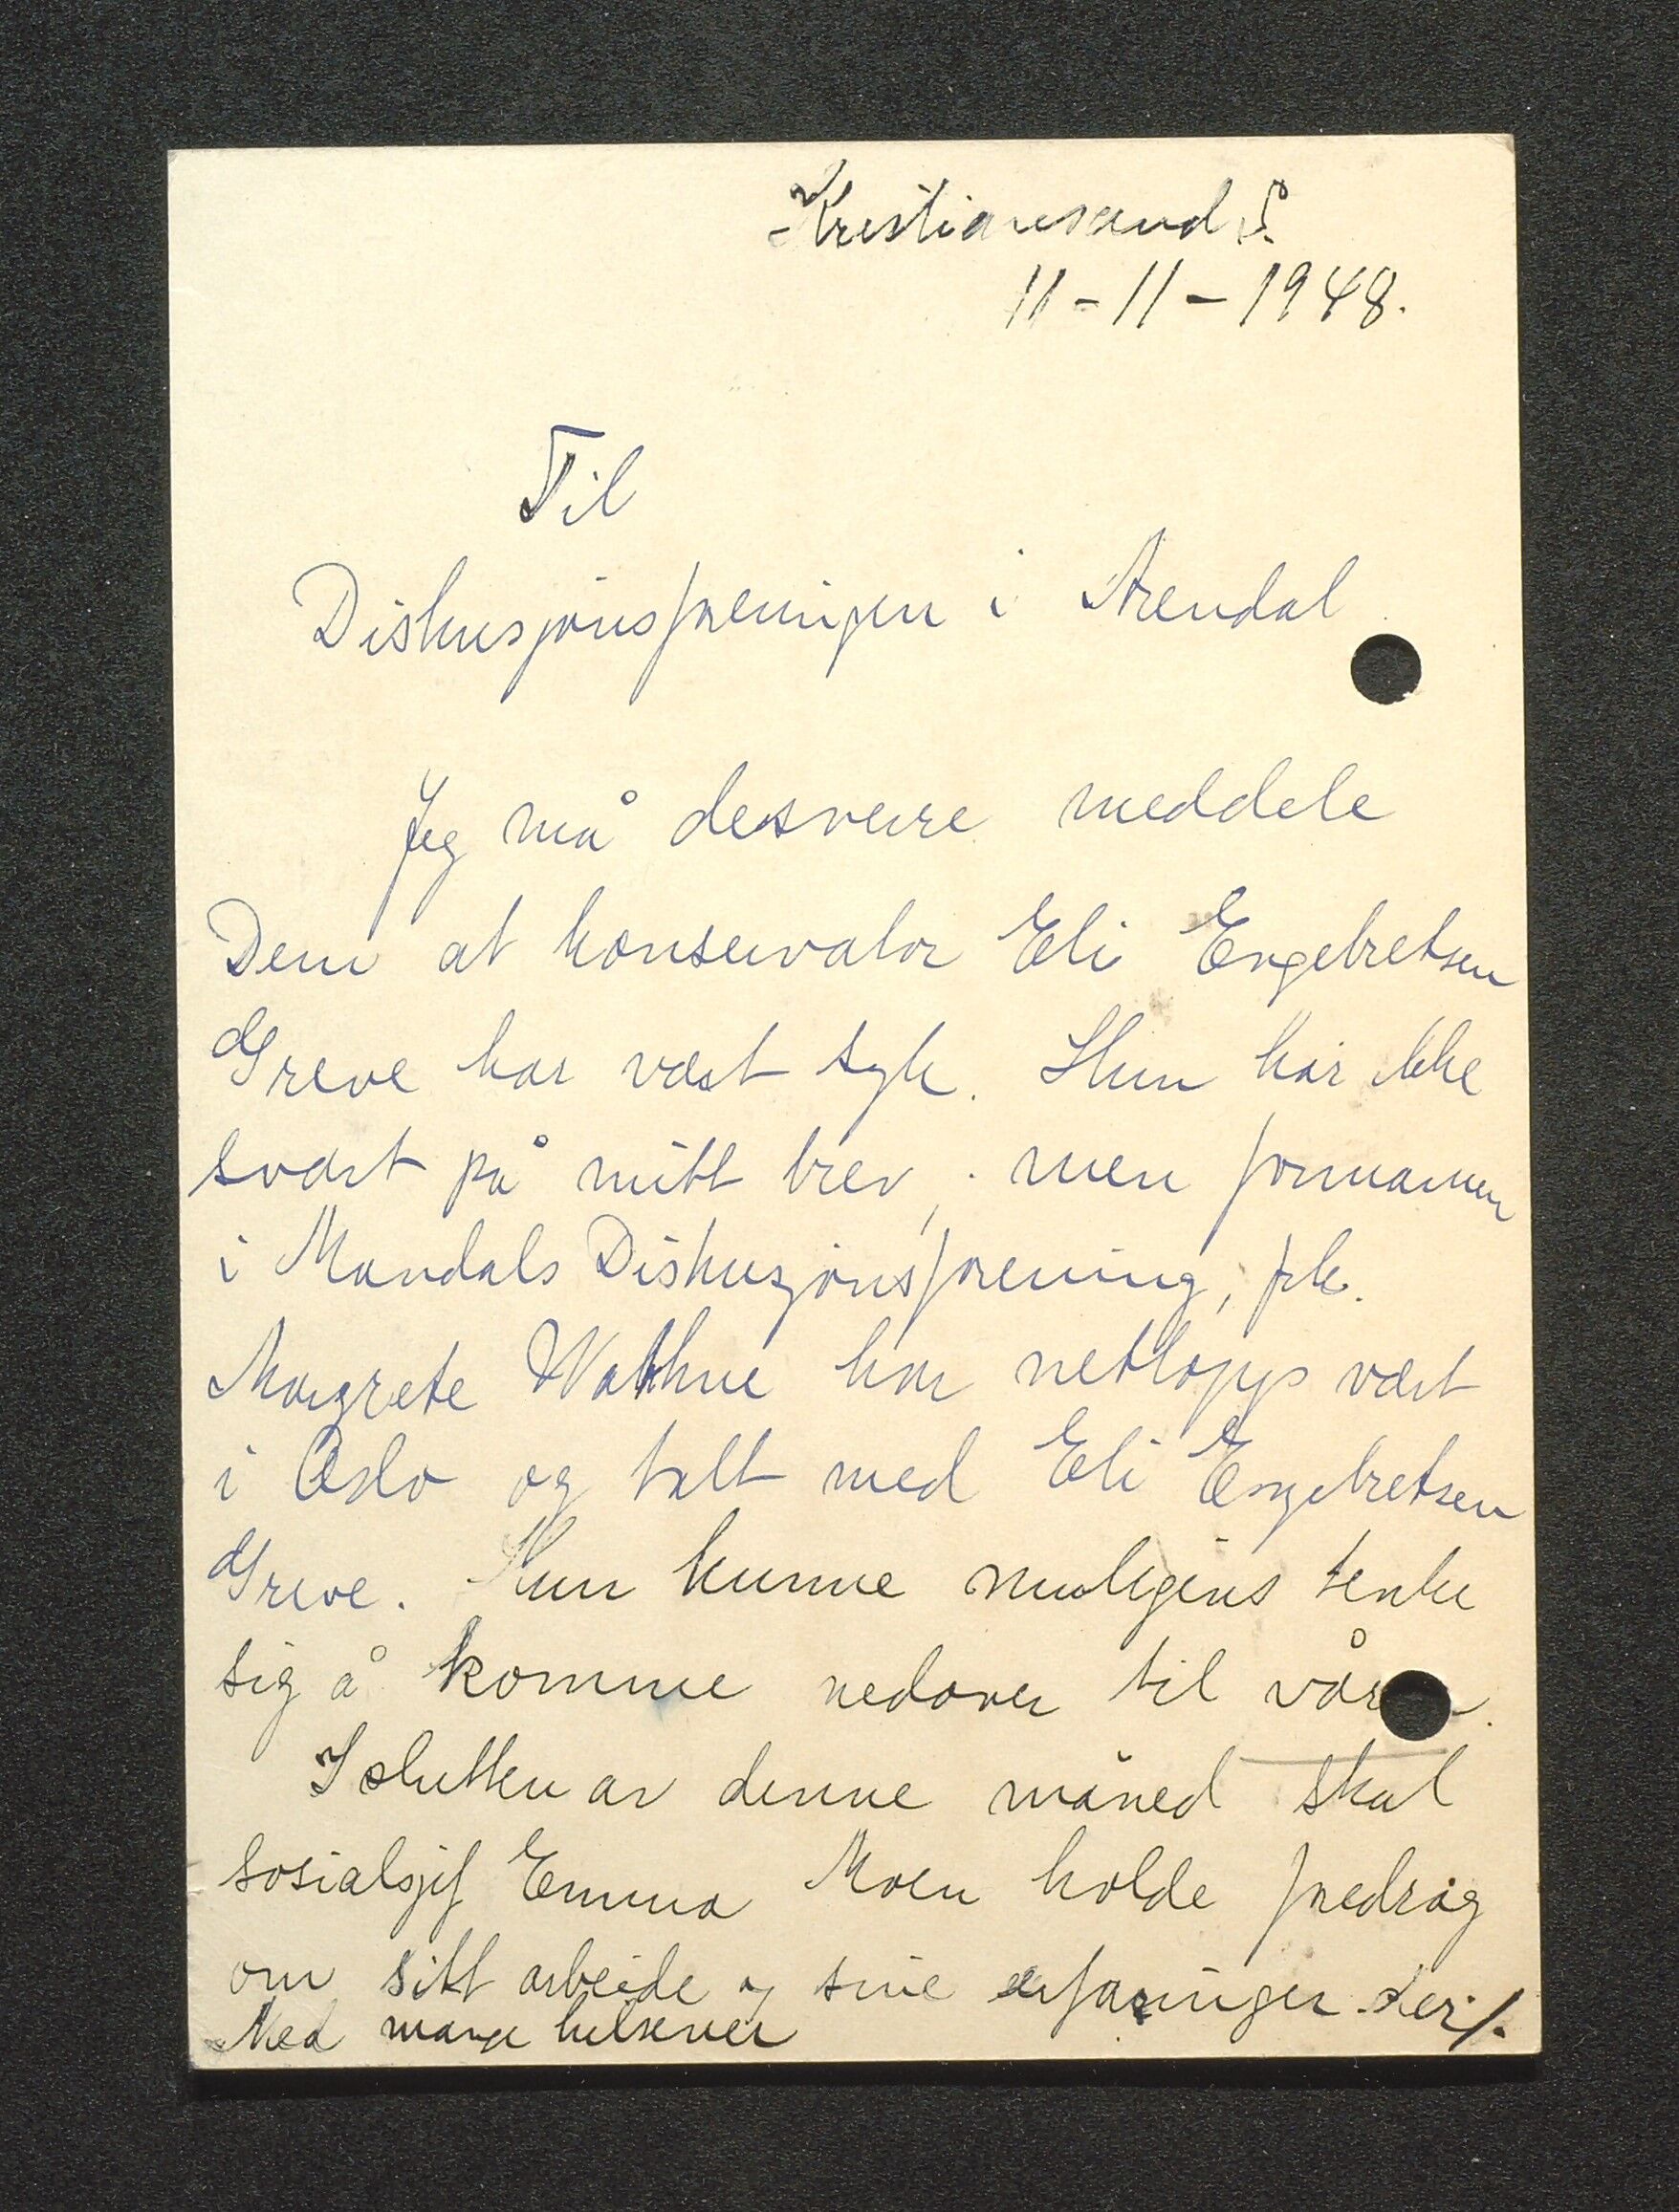 Kristiansand S.
11-11-1948.
Til
Diskusjonsforeningen i Arendal.
Jeg må desverre meddele
Dem at konservator Eli Engebretsen
Greve har vært syk. Hun har ikke
svart på mitt brev, men formannen
i Mandals Diskusjonsforening, frk.
Margrete Wathne har nettopp vært
i Oslo og talt med Eli Engebretsen
Greve. Hun kunne muligens tenke
sig å komme nedover til
I slutten av denne måned skal
sosialsjef Emma Moen holde foredrag
om sitt arbeide og sine erfaringer der./.
Med mange hilsener